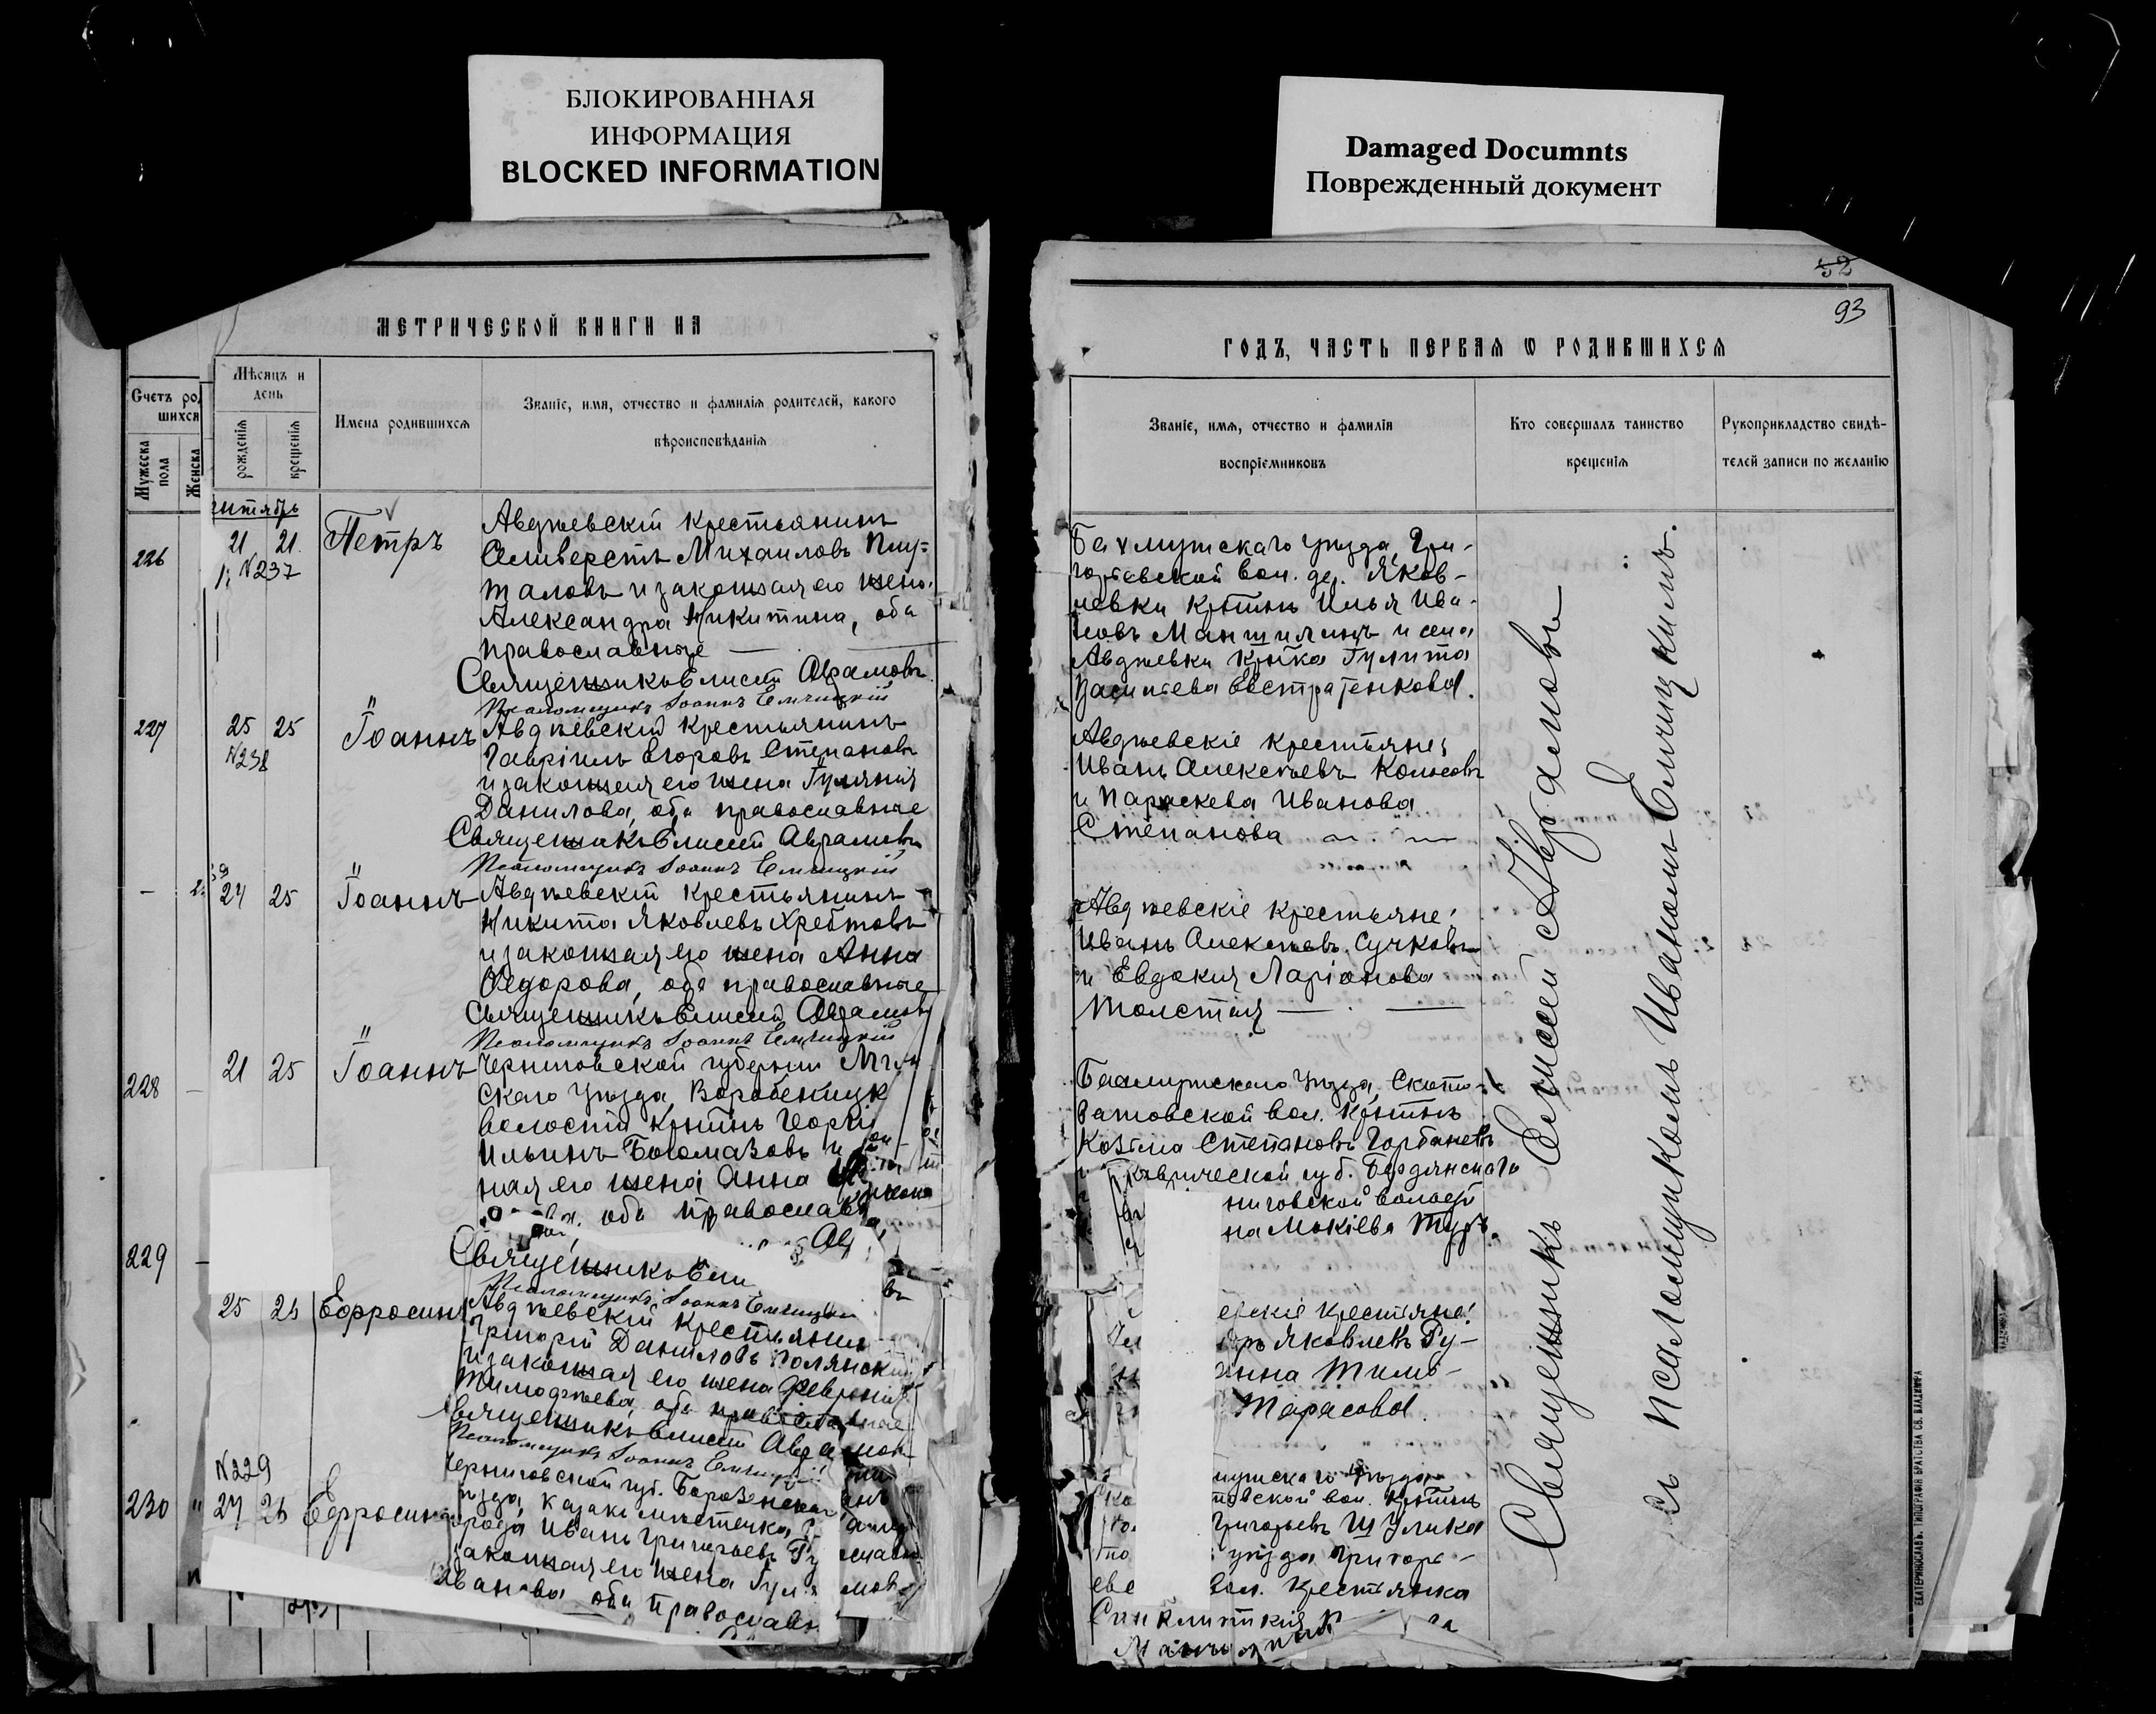 БЛОКИРОВАННАЯ
ИНФОРМАЦИЯ
BLOCKED INFORMATION
Damaged Documnts
Поврежденный документ
МЕТРИЧЕСКОЙ КНИГИ НА
Счетъ ро
шихся
Мужеска
пола
Женска
Мѣсяцъ и
день
рожденія
крещенія
Имена родившихся
Званіе, имя, отчество и фамилія родителей, какого
вѣроисповѣданія
226
21 21.
N237
Петръ
Авдѣевскій крестьянинъ
Селиверстъ Михаиловъ
таловъ и законная его жена
Александра Никитина, оба
православные
Священникъ Елисей Аврамовъ
Псаломщикъ Іоаннъ Емчицкій
227
25 25
N238
Іоаннъ
Авдѣевскій крестьянинъ
Гавріилъ Егоровъ Степановъ
и законная его жена Іуліанія
Данилова, оба православные
Священникъ Елисей Аврамовъ
Псаломщикъ Іоаннъ Емчицкій
24 25
Іоаннъ
Авдѣевскій крестьянинъ
Никита Яковлевъ Хребтовъ
и законная его жена Анна
Ѳедорова, оба православные
Священникъ Елисей Аврамовъ
Псаломщикъ Іоаннъ Емчицкій
228
21 25
Іоаннъ
Черниговской губерніи Мгли
скаго уѣзда, Воробеницк
волости кр-нинъ Георгі
Ильинъ Богомазовъ и
ная его жена Анна
оба православн
229
Священникъ Ели
Псаломщикъ Іоаннъ Емчицкій
25 26
Ефросин
Авдѣевскій крестьянин
Григорій Даниловъ Полянск
и законная его жена Февронія
Тимофѣева, оба православные
Священникъ Елисей Аврамов
Псаломщикъ Іоаннъ Емчицкій
N229
230
24 26
Ефросин
Черниговской губ. Борзенска
уѣзда, казакъ мѣстечка
Иванъ Григорьевъ
законная его жена
Иванова оба православн
52
93
ГОДЪ, ЧАСТЬ ПЕРВАЯ Ѡ РОДИВШИХСЯ
Званіе, имя, отчество и фамилія
воспріемниковъ
Кто совершалъ таинство
крещенія
Рукоприкладство свидѣ-
телей записи по желанію
Бахмутскаго уѣзда, Гри-
горьевской вол. дер. Яков-
левки кр-нинъ Илья Ива-
новъ Маншилинъ и села
Авдѣевки кр-нка Іулита
Васильева Евстратенкова.
Авдѣевскіе крестьяне:
Иванъ Алексѣевъ Колесовъ
и Параскева Иванова
Степанова
Авдѣевскіе крестьяне:
Иванъ Алексѣевъ Сучковъ
и Евдокія Ларіонова
Толстая
Бахмутскаго уѣзда, Ското-
ватовской вол. кр-нинъ
Козьма Степановъ Горбаневъ
Таврической губ. Бердянскаго
ниговской волости
на Мокіева Тур
евскіе крестьяне:
ръ Яковлевъ Ру-
анна Тимо-
Тарасова.
мутскаго уѣзда
товской вол. кр-нинъ
Григорьевъ Шулика
уѣзда Григорь-
еве вол. крестьянка
Синклитикія
Священникъ Елисей Аврамовъ
съ псаломщикомъ Иваномъ Емчицкимъ.
ЕКАТЕРИНОСЛАВЪ. ТИПОГРАФІЯ БРАТСТВА СВ. ВЛАДИМІРА